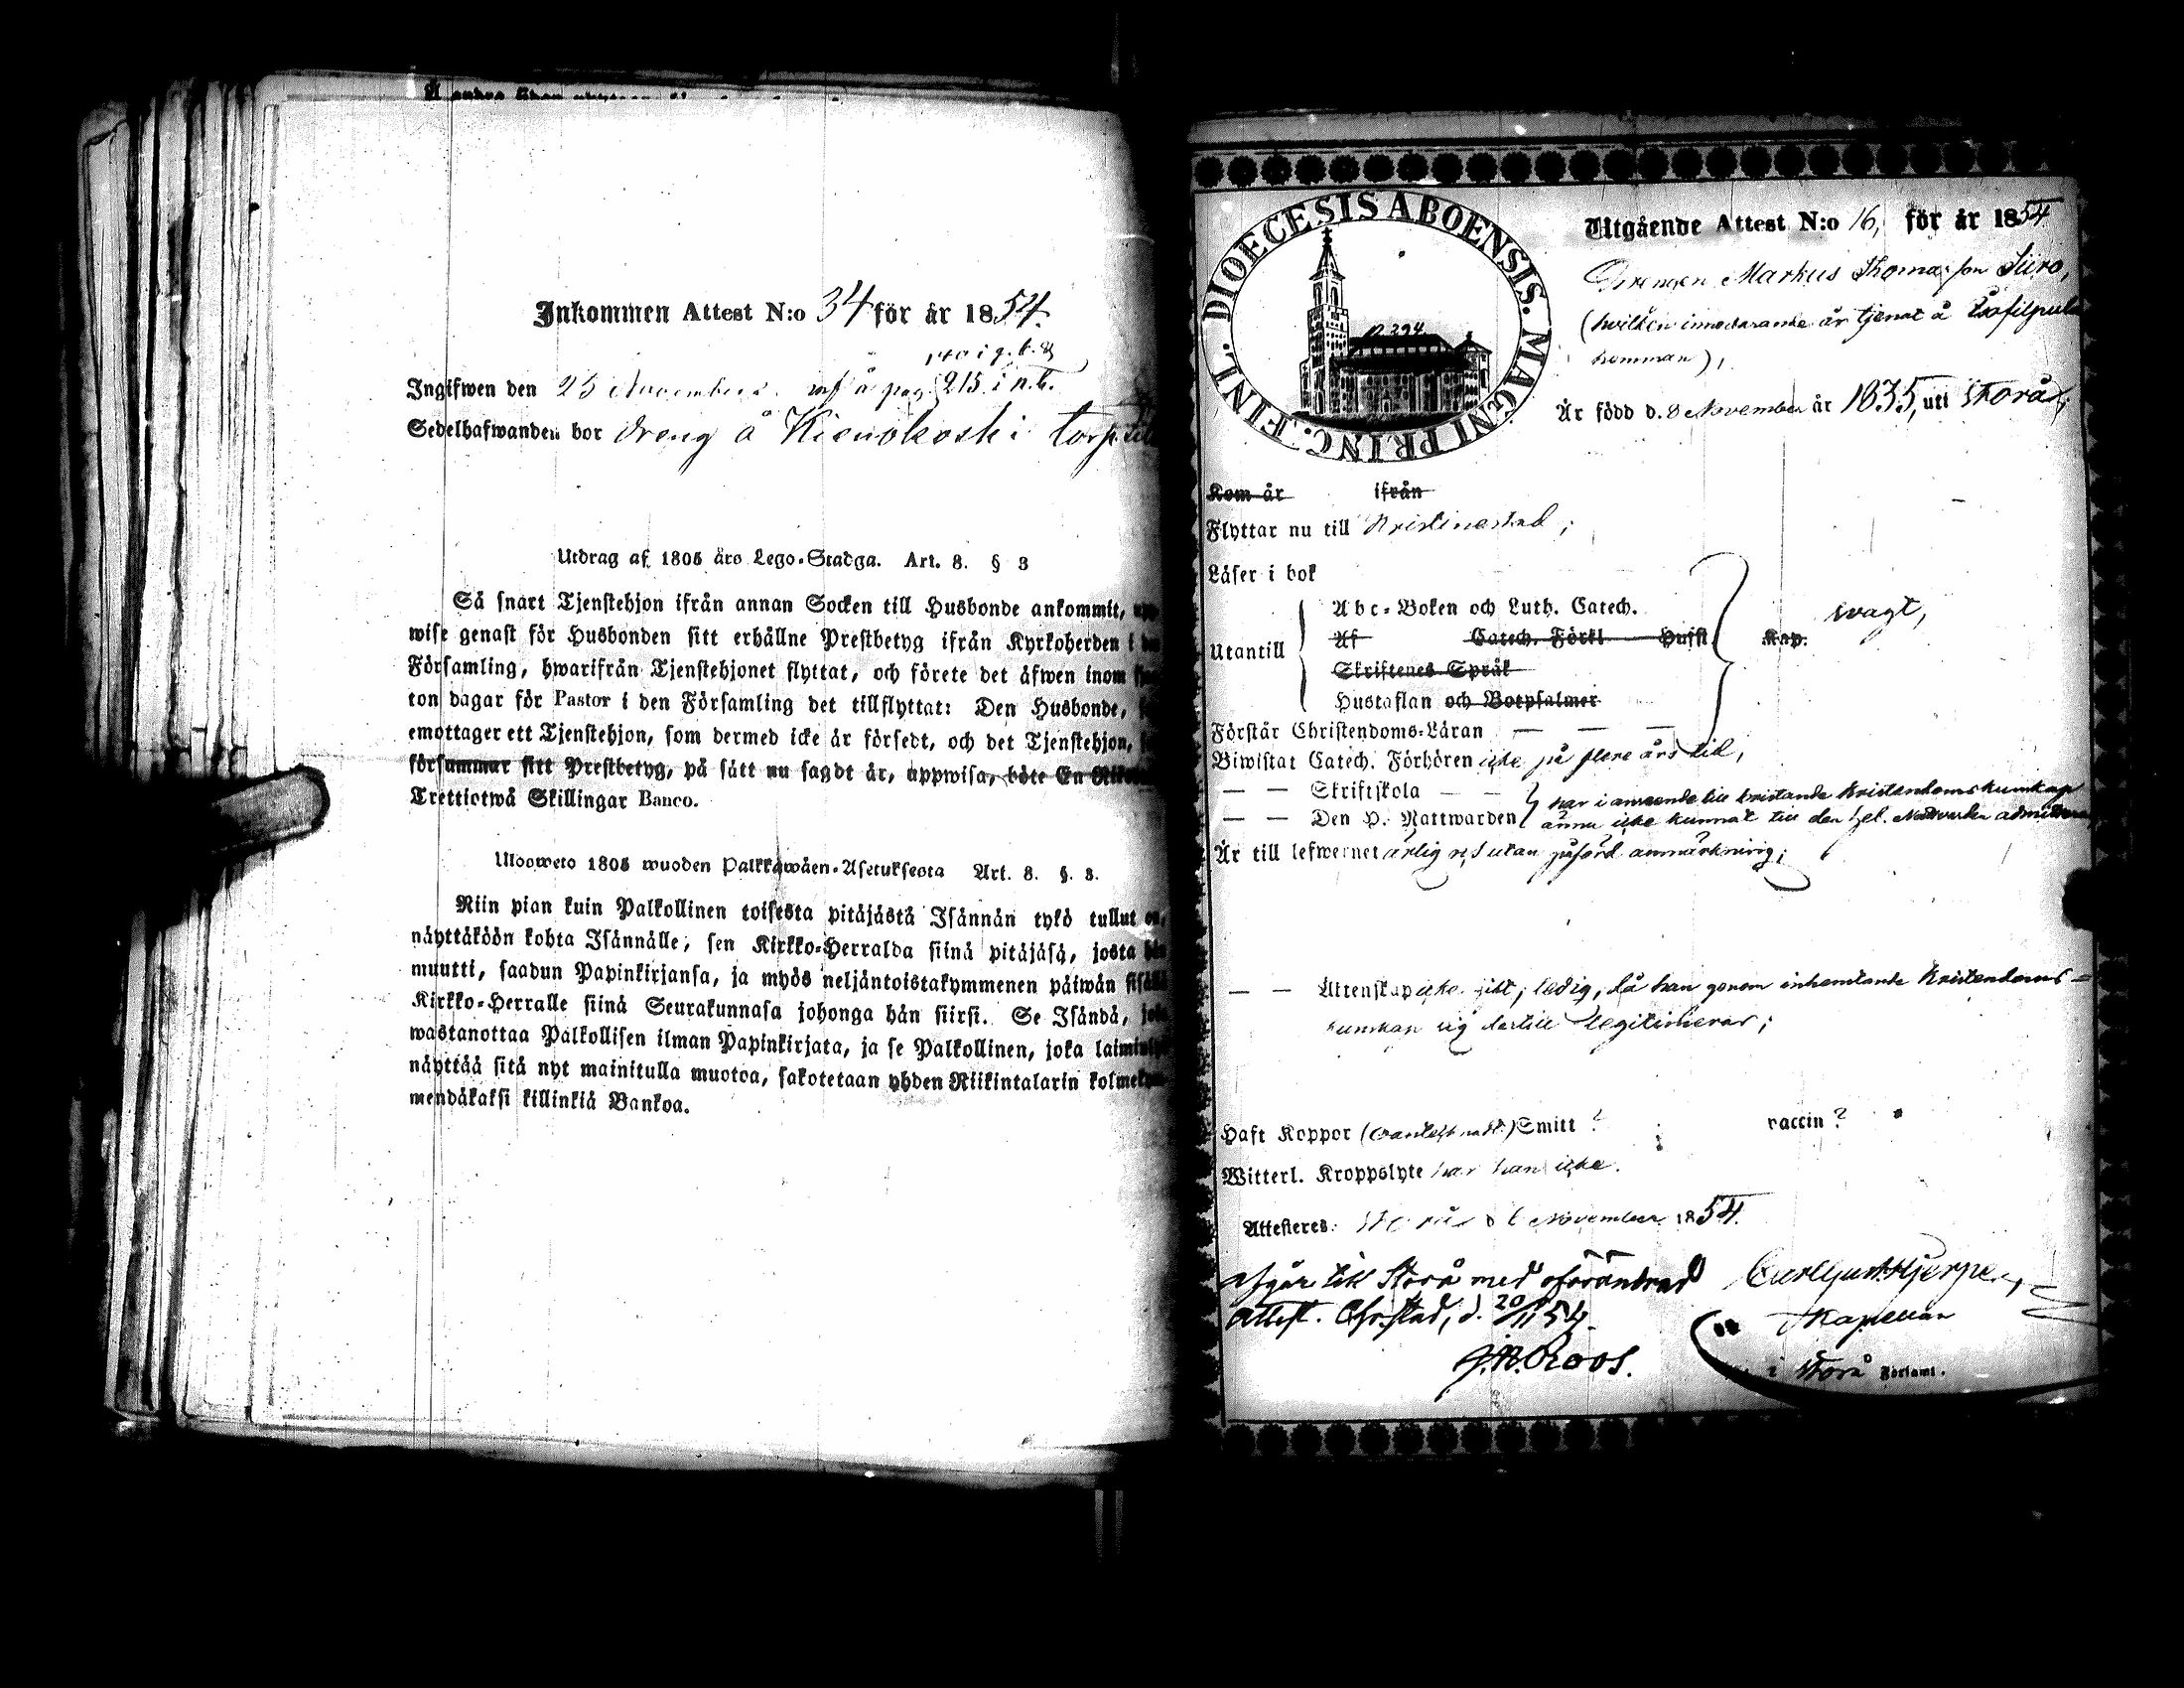 Inkommen Attest N:o 34 för år 1854.
Ingifwen den 25 November. inf. å pag. 215. i n.b.
Sedelhafwanden bor dreng å Kienokoski torp
Utdrag af 1805 års Lego-Stadga. Art. 8. § 3
Så snart Tjenstehjon ifrån annan Socken till Husbonde ankommit,
wise genast för Husbonden sitt erhållne Prestbetyg ifrån Kyrkoherden i
Församling, hwarifrån Tjenstehjonet flyttat, och förete det äfwen inom
ton dagar för Pastor i den Församling det tillflyttat: Den Husbonde,
emottager ett Tjenstehjon, som dermed icke är försedt, och det Tjenstehjon,
försummar sitt Prestbetyg, på sätt nu sagdt är, uppwisa, böte En
Trettiotwå Skillingar Banco.
Ulosweto 1805 wuoden Palkkawäen-Asetuksesta Art. 8. §. 3.
Niin pian kuin Palkollinen toisesta pitäjästä Isännän tykö tullut on,
näyttäköön kohta Isännälle, sen Kirkko-Herralda siinä pitäjäsä, josta hän
muutti, saadun Papinkirjansa, ja myös neljäntoistakymmenen päiwän sisällä
Kirkko-Herralle siinä Seurakunnasa johonga hän siirsi. Se Isändä, joka
wastanottaa Palkollisen ilman Papinkirjata, ja se Palkollinen, joka
näyttää sitä nyt mainitulla muotoa, sakotetaan yhden Riikintalarin
mendäkaksi killinkiä Bankoa.
DIOECESIS ABOENSIS. MAGNI PRINC. FINL.
N 294
Utgående Attest N:o 16, för år 1854
Drengen Markus Thomasson Siiro,
(hwilken innewarande år tjenat å
hemman),
Är född d. 8 November år 1835, uti Storå,
Kom år ifrån
Flyttar nu till Kristinestad;
Läser i bok
Abc-Boken och Luth. Catech.
swagt,
Utantill
Af Catech. Förkl Hufst. Kap.
Skriftenes Språk
Hustaflan och Botpsalmer
Förstår Christendoms-Läran — — —
Biwistat Catech. Förhören icke på flere års tid,
— — Skriftskola — — har i anseende till bristande kristendomskunskap
— — Den H. Nattwarden ännu icke kunnat till den hel. Nattvarden
Är till lefwernet ärlig och utan påförd anmärkning;
— — Äktenskap icke gift; ledig, då han genom inhemtande kristendoms-
kunskap sig dertill legitimerar;
Haft Koppor Smitt ? vaccin ?
Witterl. Kroppslyte har han icke.
Attesteres: Storå d 6 November 1854.
Afgår till Storå med oförändrad
Attest. Chr.stad, d. 20/11 54.
J. A. Roos.
Carl Gust. Hjerpe,
Kapellan
i Storå Församl.